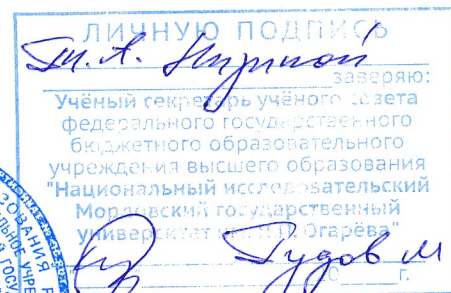 ЛИЧНУЮ ПОДПИСЬ
Т.А.
заверяю:
Учёный секретарь учёного совета
федерального государственного
бюджетного образовательного
учреждения высшего образования
"Национальный исследовательский
Мордовский государственный
университет им. Н.П. Огарёва"
Гудов М
20 г.